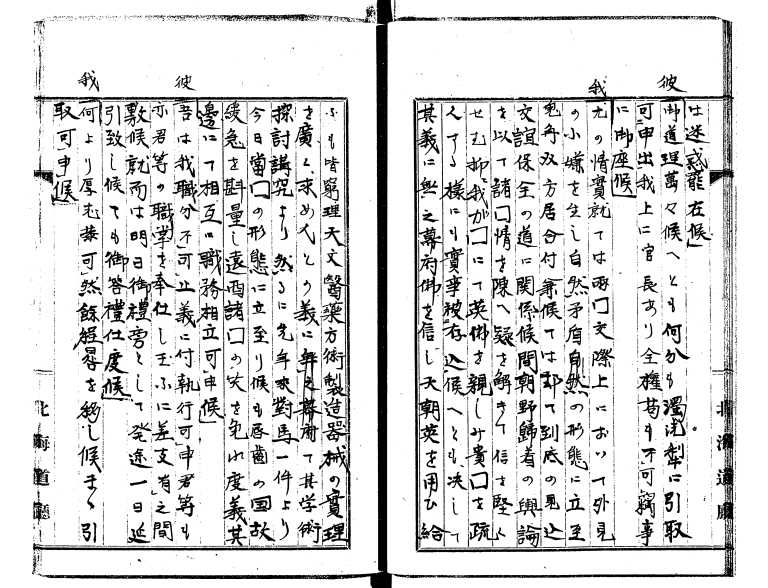 は迷惑罷在候」
彼
御道理萬々候へとも何分も 引取
可申出我上に官長あり全權苟も不可竊事
に御座候」
我
尤の情實就ては両囗交際上において外見
の小嫌を生し自然矛盾自然の形態に立至
見舟双方居合付兼候ては却て到底の見込
交誼保全の道に關係候間朝野歸着の輿論
を以て諸囗情を陳へ疑を解きて信を堅く
せむ抑々我が囗にて英佛を親しみ貴囗を疏
んする様にも實事被存込候へとも决して
其義に無之幕府佛を信し天朝英を用ひ給
ふも皆窮理天文醫藥方術製造器械の實理
を廣く求めんとの義に 幕府て其学術
探討講究より然るに先年来對馬一件より
今日當囗の形態に立至り候も唇歯の国故
緩急を斟量し遠西諸囗の笑を免れ度義其
邊にて相互に職務相立可申候」
彼
吾は我職分不可止義に付執行可申君等も
亦君等の職掌を奉仕し玉ふに差支有之間
敷候就而は明日御禮旁として発途一日延
引致し候ても御答禮仕度候」
我
何より厚志恭可然餘程晷を移し候まゝ引
取可申候」
北海道廳
北海道廳